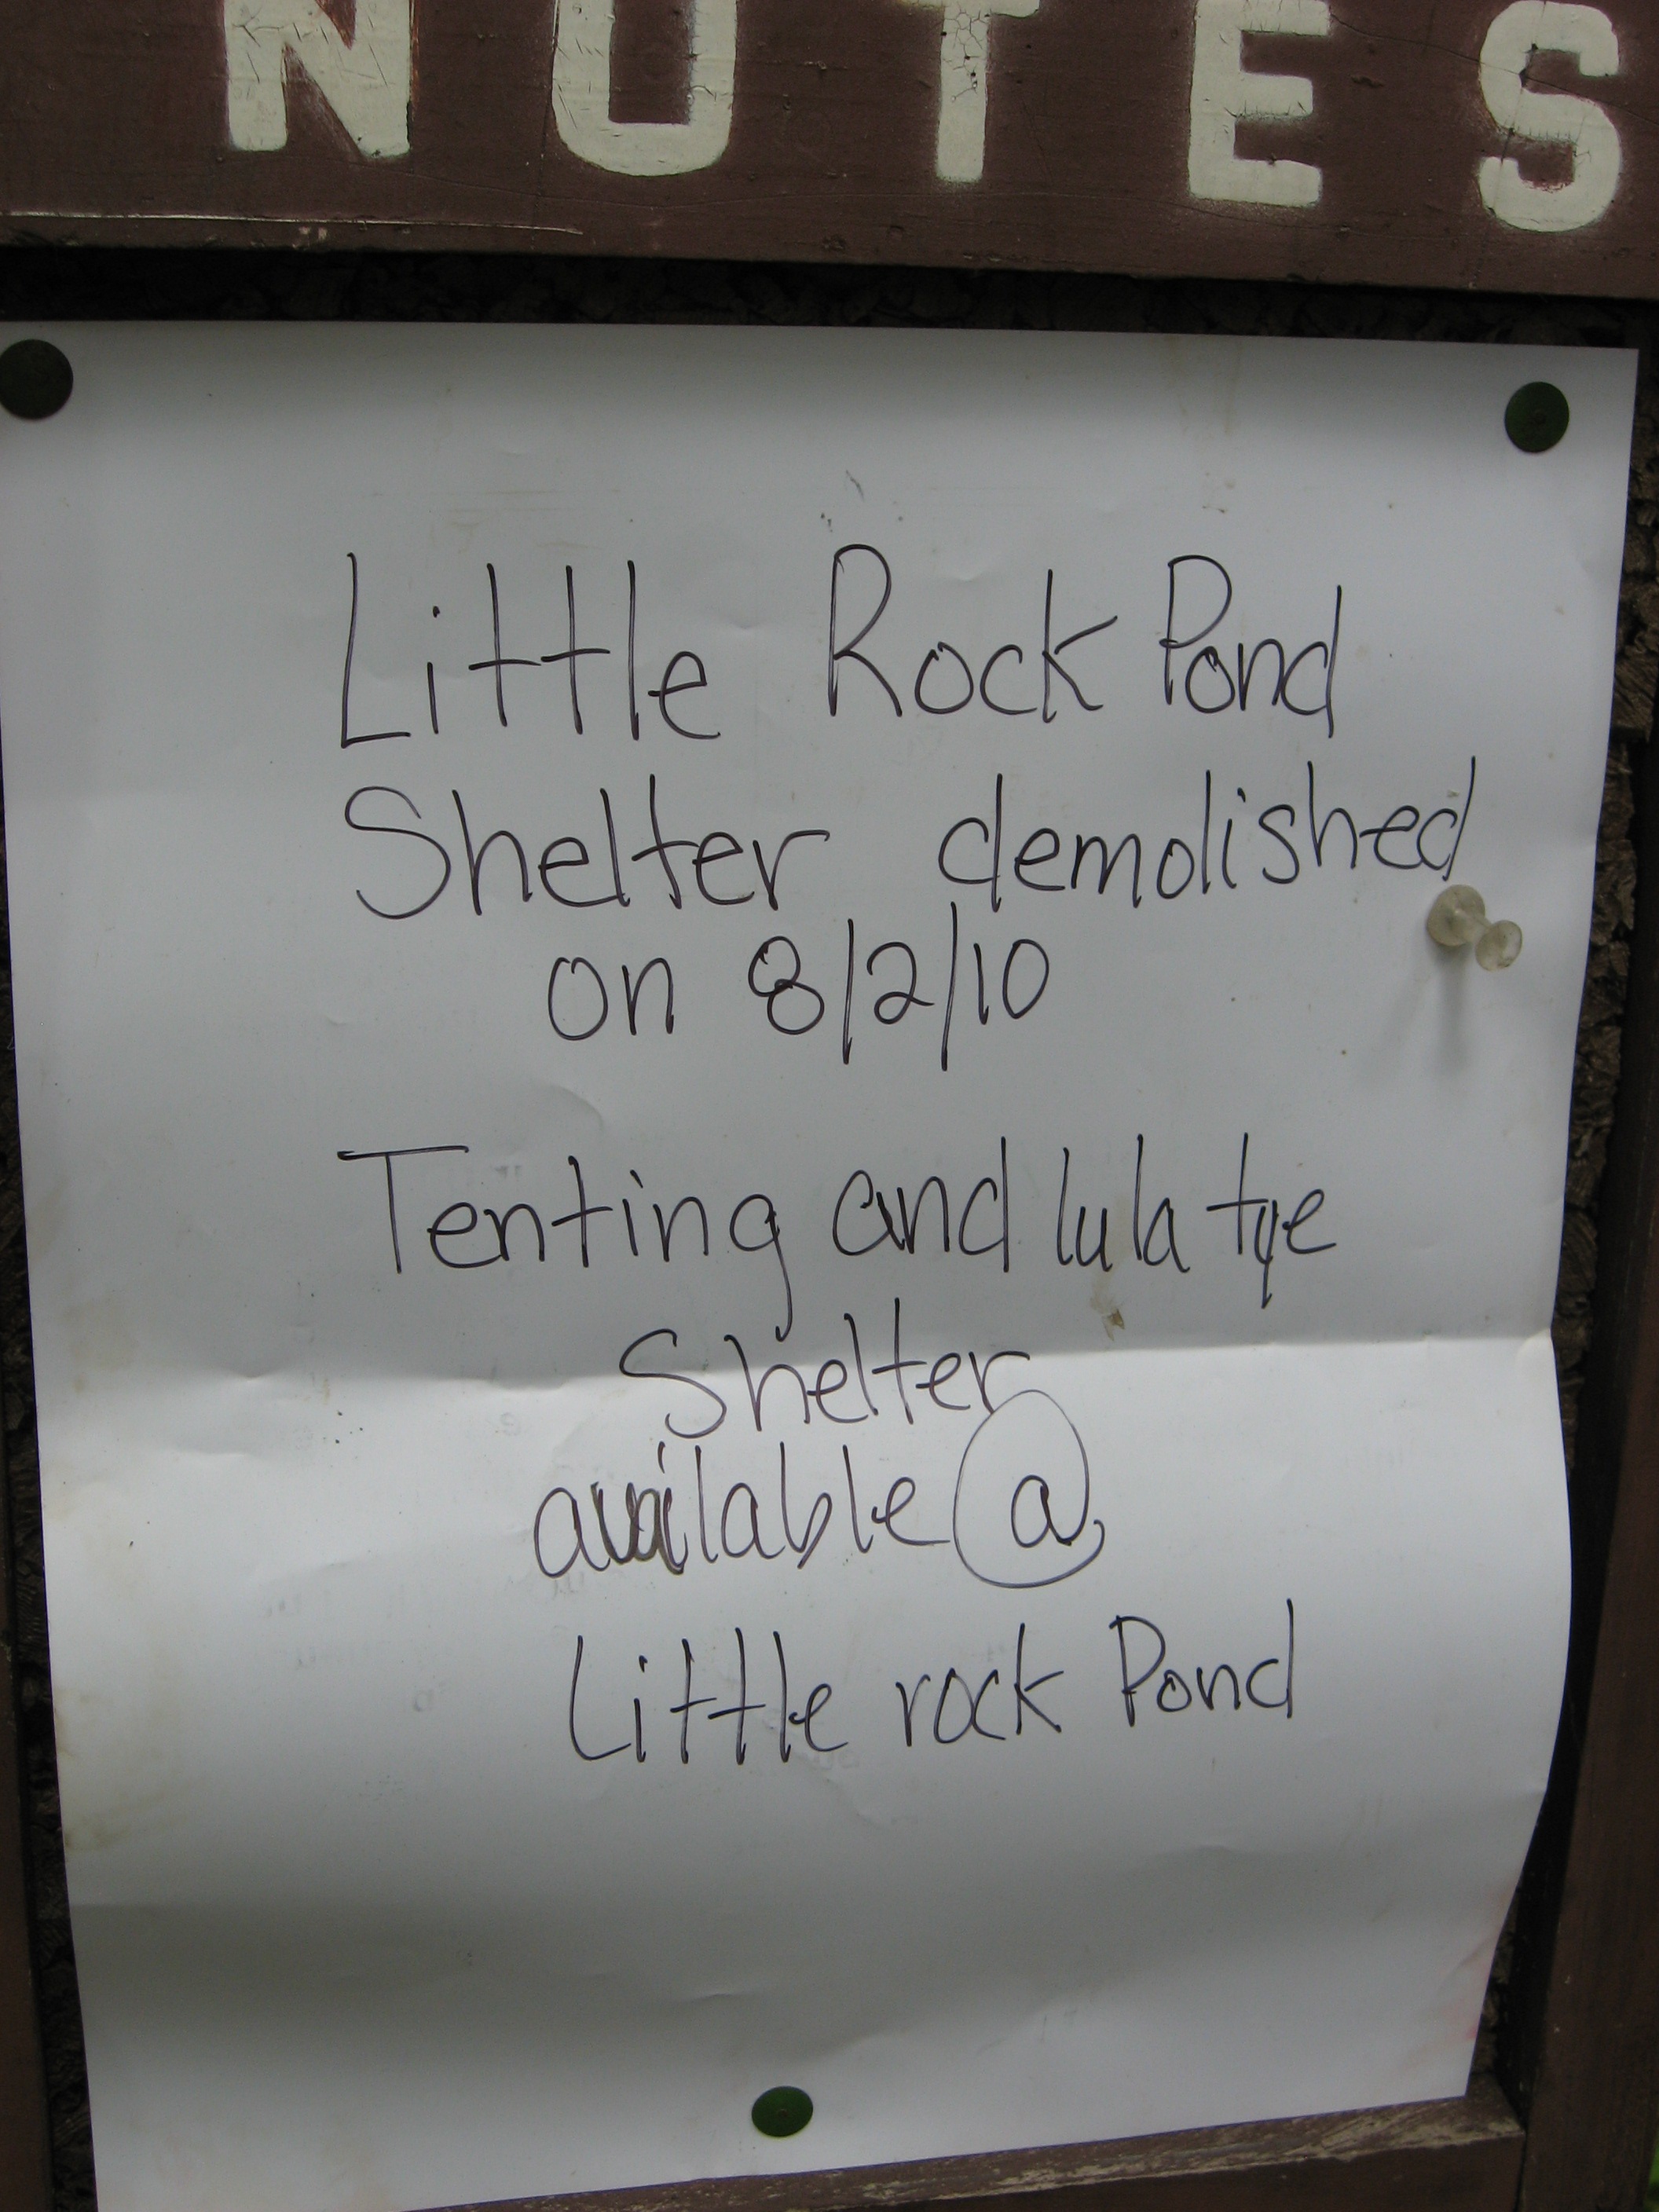 NOTES
Little Rock Pond
Shelter demolished
on 8/2/10
Tenting and lula tye
Shelter
available @
Little rock Pond